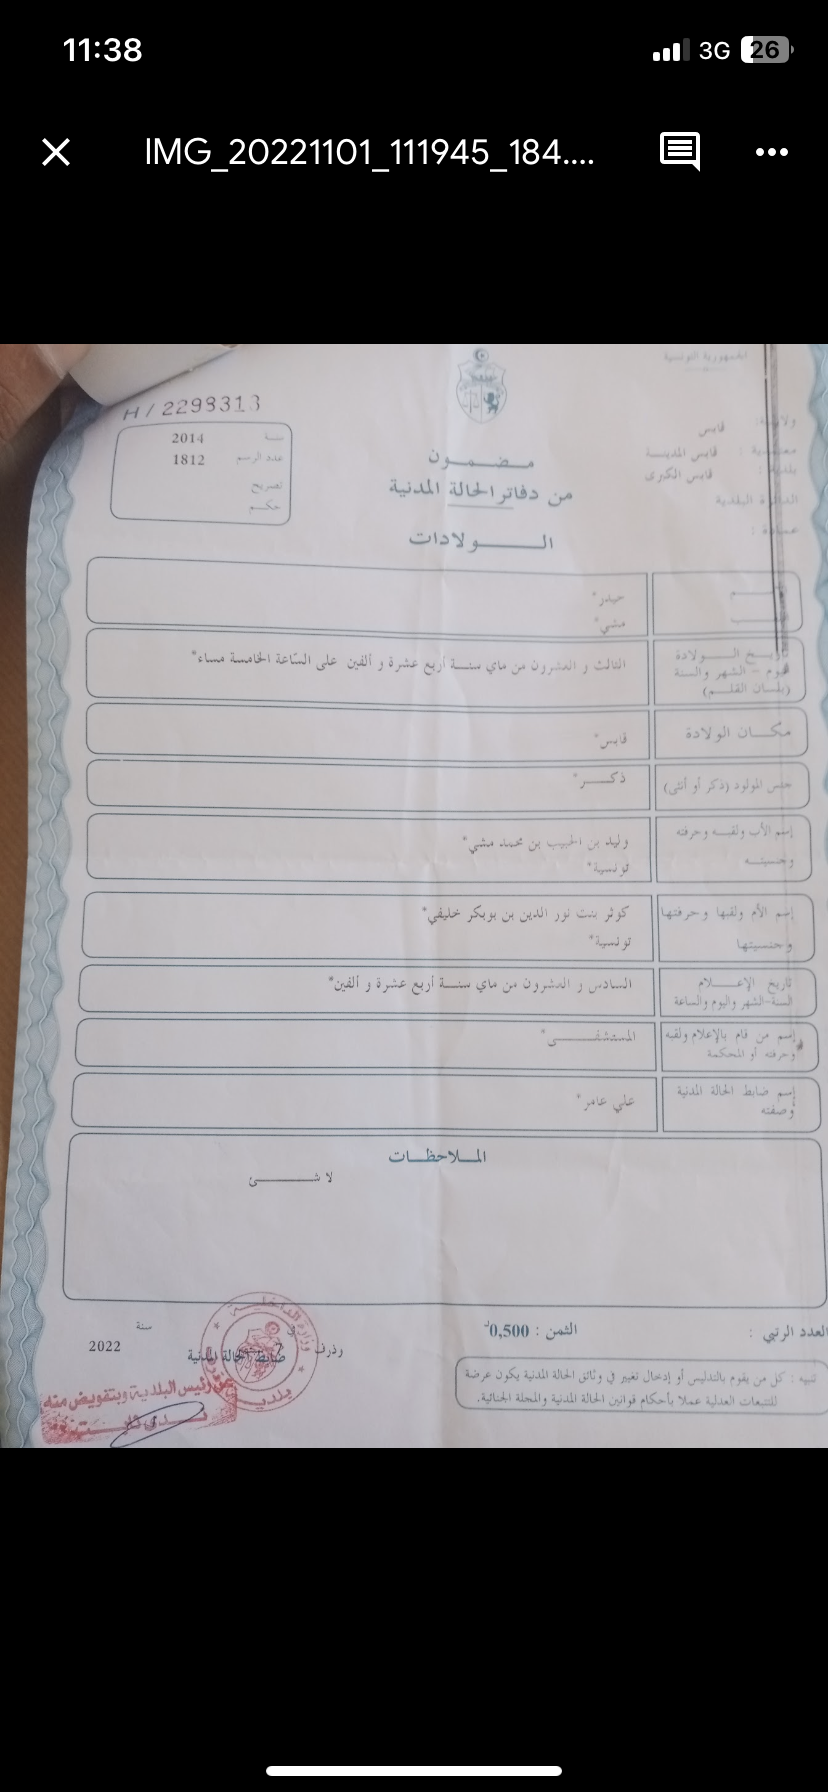 11:38
3G 26
IMG_20221101_111945_184....
الجمهورية التونسية
H / 2298313
سنة 2014
عدد الرسم 1812
تصريح
حكم
ولاية: قابس
معتمدية : قابس المدينة
بلدية : قابس الكبرى
الدائرة البلدية
عمادة :
مضمون
من دفاتر الحالة المدنية
الولادات
حيدر*
مشي*
تاريخ الولادة
اليوم - الشهر والسنة
(بلسان القلم)
الثالث و العشرون من ماي سنة أربع عشرة و ألفين على الساعة الخامسة مساء*
مكان الولادة
قابس*
جنس المولود (ذكر أو أنثى)
ذكر*
إسم الأب ولقبه وحرفته
وجنسيته
وليد بن الحبيب بن محمد مشي*
تونسية*
إسم الأم ولقبها وحرفتها
وجنسيتها
كوثر بنت نور الدين بن بوبكر خليفي*
تونسية*
تاريخ الإعلام
السنة-الشهر واليوم والساعة
السادس و العشرون من ماي سنة أربع عشرة و ألفين*
إسم من قام بالإعلام ولقبه
وحرفته أو المحكمة
المستشفى*
إسم ضابط الحالة المدنية
وصفته
علي عامر*
الملاحظات
لا شئ
العدد الرتبي :
الثمن : 0,500د
وذرف في
سنة 2022
ضابط الحالة المدنية
وزارة الداخلية
بلدية
عن رئيس البلدية وبتفويض منه
تنبيه : كل من يقوم بالتدليس أو إدخال تغيير في وثائق الحالة المدنية يكون عرضة
للتتبعات العدلية عملا بأحكام قوانين الحالة المدنية والمجلة الجنائية.